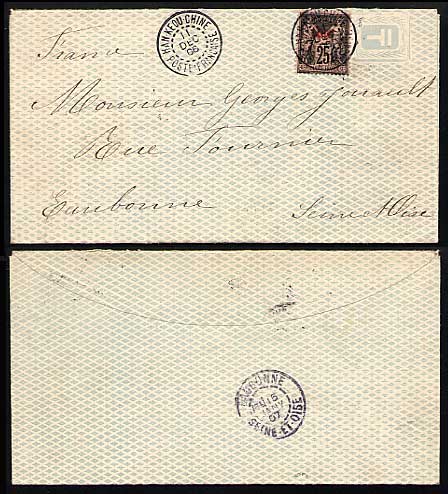 HAN-KEOU-CHINE
11
DEC
06
POSTE FRANÇAISE
25
France
Monsieur Georges Jouault
Rue Fournier
Eaubonne
Seine et Oise
EAUBONNE
07
SEINE-ET-OISE